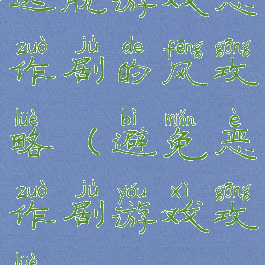 zuò jù de fēng gōng
作剧的风攻
lüè bì miǎn è
略（避免恶
zuò jù yóu xì gōng
作剧游戏攻
lüè